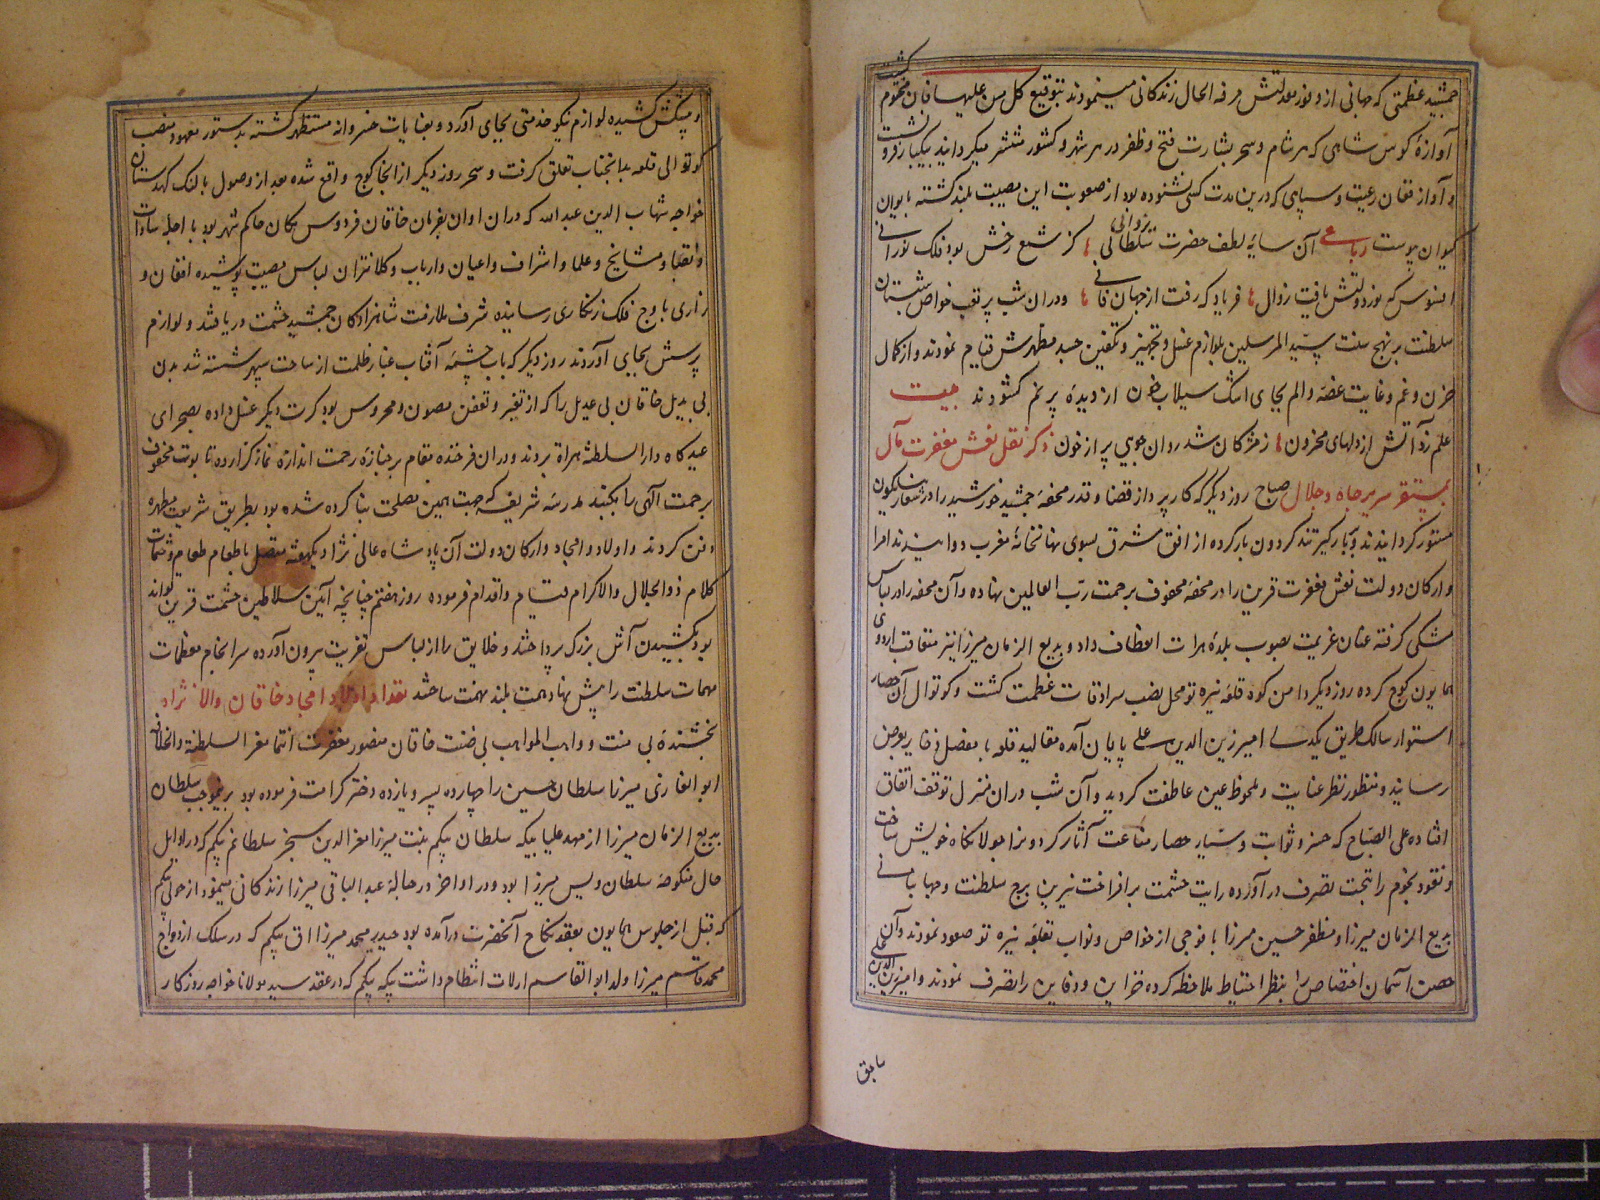 جمشید عظمتی که جهانی از وفور معدلتش مرفه الحال زندکانی مینمودند بتوقیع کل من علیها فان مختوم کشت
آوازهٔ کوس شاهی که هر شام و سحر بشارت فتح و ظفر در هر شهر و کشور منتشر میکردانید بیکبار فرو نشست
و آواز فغان رعیت و سپاهی که درین مدت کسی نشنوده بود از صعوبت این مصیبت بلند کشته بایوان
کیوان پیوست رباعی آن سایهٔ لطف حضرت یزدانی کز شمع رخش بود فلک نورانی
افسوس که نور دولتش یافت زوال فریاد که رفت از جهان فانی ودران شب پر تعب خواص شبستان
سلطنت بر نهج سنت سید المرسلین بلوازم غسل و تجهیز و تکفین جسد مطهرش قیام نمودند و از کمال
حزن و غم و غایت غصه و الم بجای اشک سیلاب خون از دیدهٔ پر نم کشودند بیت
علم زد آتش از دلهای محزون ز مژکان شد روان جویی پر از خون ذکر نقل نعش مغفرت مآل
بمستقر سریر جاه و جلال صباح روز دیکر که کارپرداز قضا و قدر محفهٔ جمشید خورشید را در شعار نیلکون
مستور کردانیدند و بارکیر تند کردون بار کرده از افق مشرق بسوی نهانخانهٔ مغرب دوانیدند امرا
و ارکان دولت نعش مغفرت قرین را در محفهٔ محفوف برحمت رب العالمین نهاده و آن محفه را در لباس
مشکی کرفته عنان عزیمت بصوب بلدهٔ هرات انعطاف داد و بدیع الزمان میرزا نیز متعاقب اردوی
همایون کوچ کرده روز دیکر دامن کوه قلعه نیره تو محل نصب سرادقات عظمت کشت و کوتوال آن حصار
استوار سالک طریق یکدلی امیر زین الدین علی پایان آمده مقالید قلعه با مفصل ذخایر بعرض
رسانید و منظور نظر عنایت و ملحوظ عین عاطفت کردید و آن شب دران منزل توقف اتفاق
افتاده علی الصباح که خسرو ثوابت و سیار حصار مناعت آثار کردون را جولانکاه خویش ساخت
و نقود نجوم را بتحت تصرف در آورده رایت حشمت برافراخت نیرین برج سلطنت و جهانبانی
بدیع الزمان میرزا و مظفر حسین میرزا با فوجی از خواص و نواب بقلعه نیره تو صعود نمودند و آن
حصن آسمان اختصاص را بنظر احتیاط ملاحظه کرده خزاین و دفاین را تصرف نمودند و امیر زین الدین علی
سابق
و پیشکش کشیده لوازم نیکو خدمتی بجای آورد و بعنایات خسروانه مستظهر کشته بدستور معهود منصب
کوتوالی قلعه بدانجناب تعلق کرفت و سحر روز دیکر از انجا کوچ واقع شده بعد از وصول بالنک کهدستان
خواجه شهاب الدین عبد الله که دران اوان بفرمان خاقان فردوس مکان حاکم شهر بود با اجلهٔ سادات
و نقبا و مشایخ و علما و اشراف و اعیان و ارباب و کلانتران لباس مصیبت پوشیده افغان و
زاری باوج فلک زنکاری رسانیده شرف ملازمت شاهزادکان جمشید حشمت دریافتند و لوازم
پرسش بجای آوردند روز دیکر که بآب چشمهٔ آفتاب غبار ظلمت از ساحت سپهر شسته شد بدن
بی بدیل خاقان بی عدیل را که از تغیر و تعفن مصون و محروس بود کرت دیکر غسل داده بصحرای
عیدکاه دار السلطنهٔ هراة بردند و دران فرخنده مقام بر جنازهٔ رحمت اندازه نماز کزارده تابوت محفوف
برحمت الهی را بکنبد مدرسهٔ شریفه که جهت همین مصلحت بنا کرده شده بود بطریق شریعت مطهره
دفن کردند و اولاد و امجاد و ارکان دولت آن پادشاه عالی نژاد یکهفته متصل باطعام طعام و ختمات
کلام ذو الجلال والاکرام قیام و اقدام فرموده روز هفتم چنانچه آیین سلاطین حشمت قرین تواند
بود بکشیدن آش بزرک پرداختند و خلایق را از لباس تعزیت بیرون آورده سرانجام معظمات
مهمات سلطنت را پیش نهاد همت بلند نهمت ساختند تعداد اولاد امجاد خاقان والا نژاد
بخشندهٔ بی منت و واهب المواهب بی ضنت خاقان منصور مغفرت انتما معز السلطنة والخلافة
ابو الغازی میرزا سلطان حسین را چهارده پسر و یازده دختر کرامت فرموده بود برینموجب سلطان
بدیع الزمان میرزا از مهد علیا بیکه سلطان بیکم بنت میرزا معز الدین سنجر سلطانم بیکم که در اوایل
حال منکوحهٔ سلطان ویس میرزا بود و در اواخر در حبالهٔ عبد الباقی میرزا زندکانی مینمود از حولی بیکم
که قبل از جلوس همایون بعقد نکاح آنحضرت درآمده بود حیدر محمد میرزا اق بیکم که در سلک ازدواج
محمد قاسم میرزا ولد ابو القاسم ارلات انتظام داشت بیکه بیکم که در عقد سید مولانا خواجه روزکار